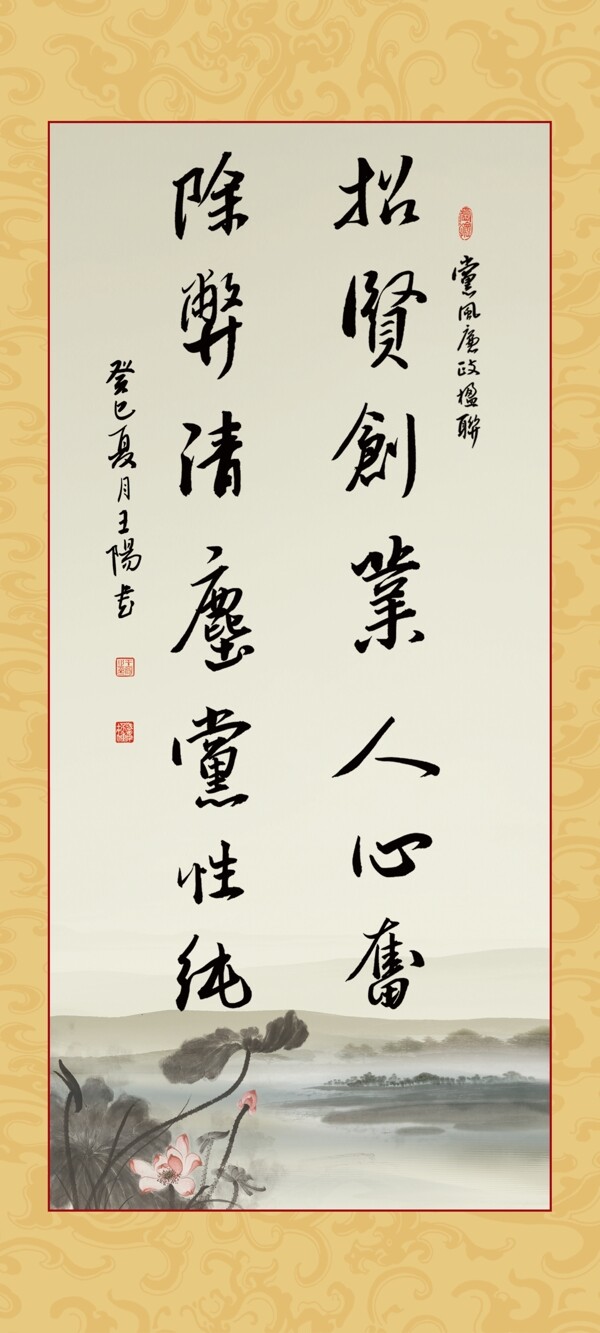 黨風廉政楹聯
招賢創業人心奮
除弊清塵黨性純
癸巳夏月王陽書